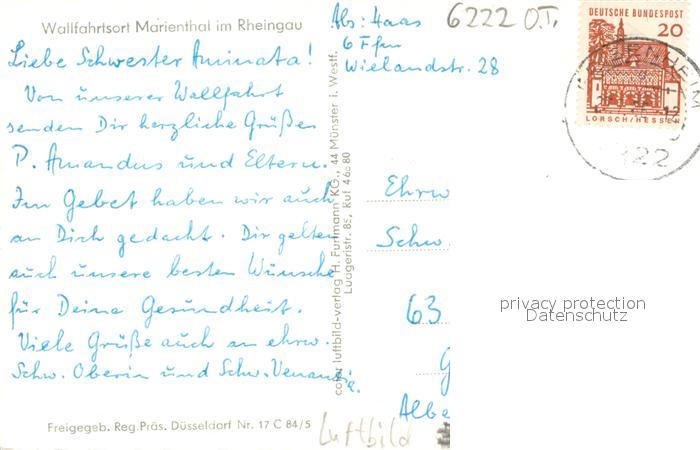 Wallfahrtsort Marienthal im Rheingau
Liebe Schwester Aminata!
Von unserer Wallfahrt
senden Dir herzliche Grüße
P. Amandus und Eltern.
Im Gebet haben wir auch
an Dich gedacht. Dir gelten
auch unsere besten Wünsche
für Deine Gesundheit.
Viele Grüße auch an ehrw.
Schw. Oberin und Schw. Venantia.
Freigegeb. Reg.Präs. Düsseldorf Nr. 17 C 84/5
color luftbild-verlag H. Furtmann KG., 44 Münster i. Westf.
Luageristr. 85, Ruf 46680
Abs: Haas
6 Ffm
Wielandstr. 28
6222 O.T.
DEUTSCHE BUNDESPOST
20
LORSCH/HESSEN
622
Ehrw
Schw.
63
G
Albe
Luftbild
privacy protection
Datenschutz